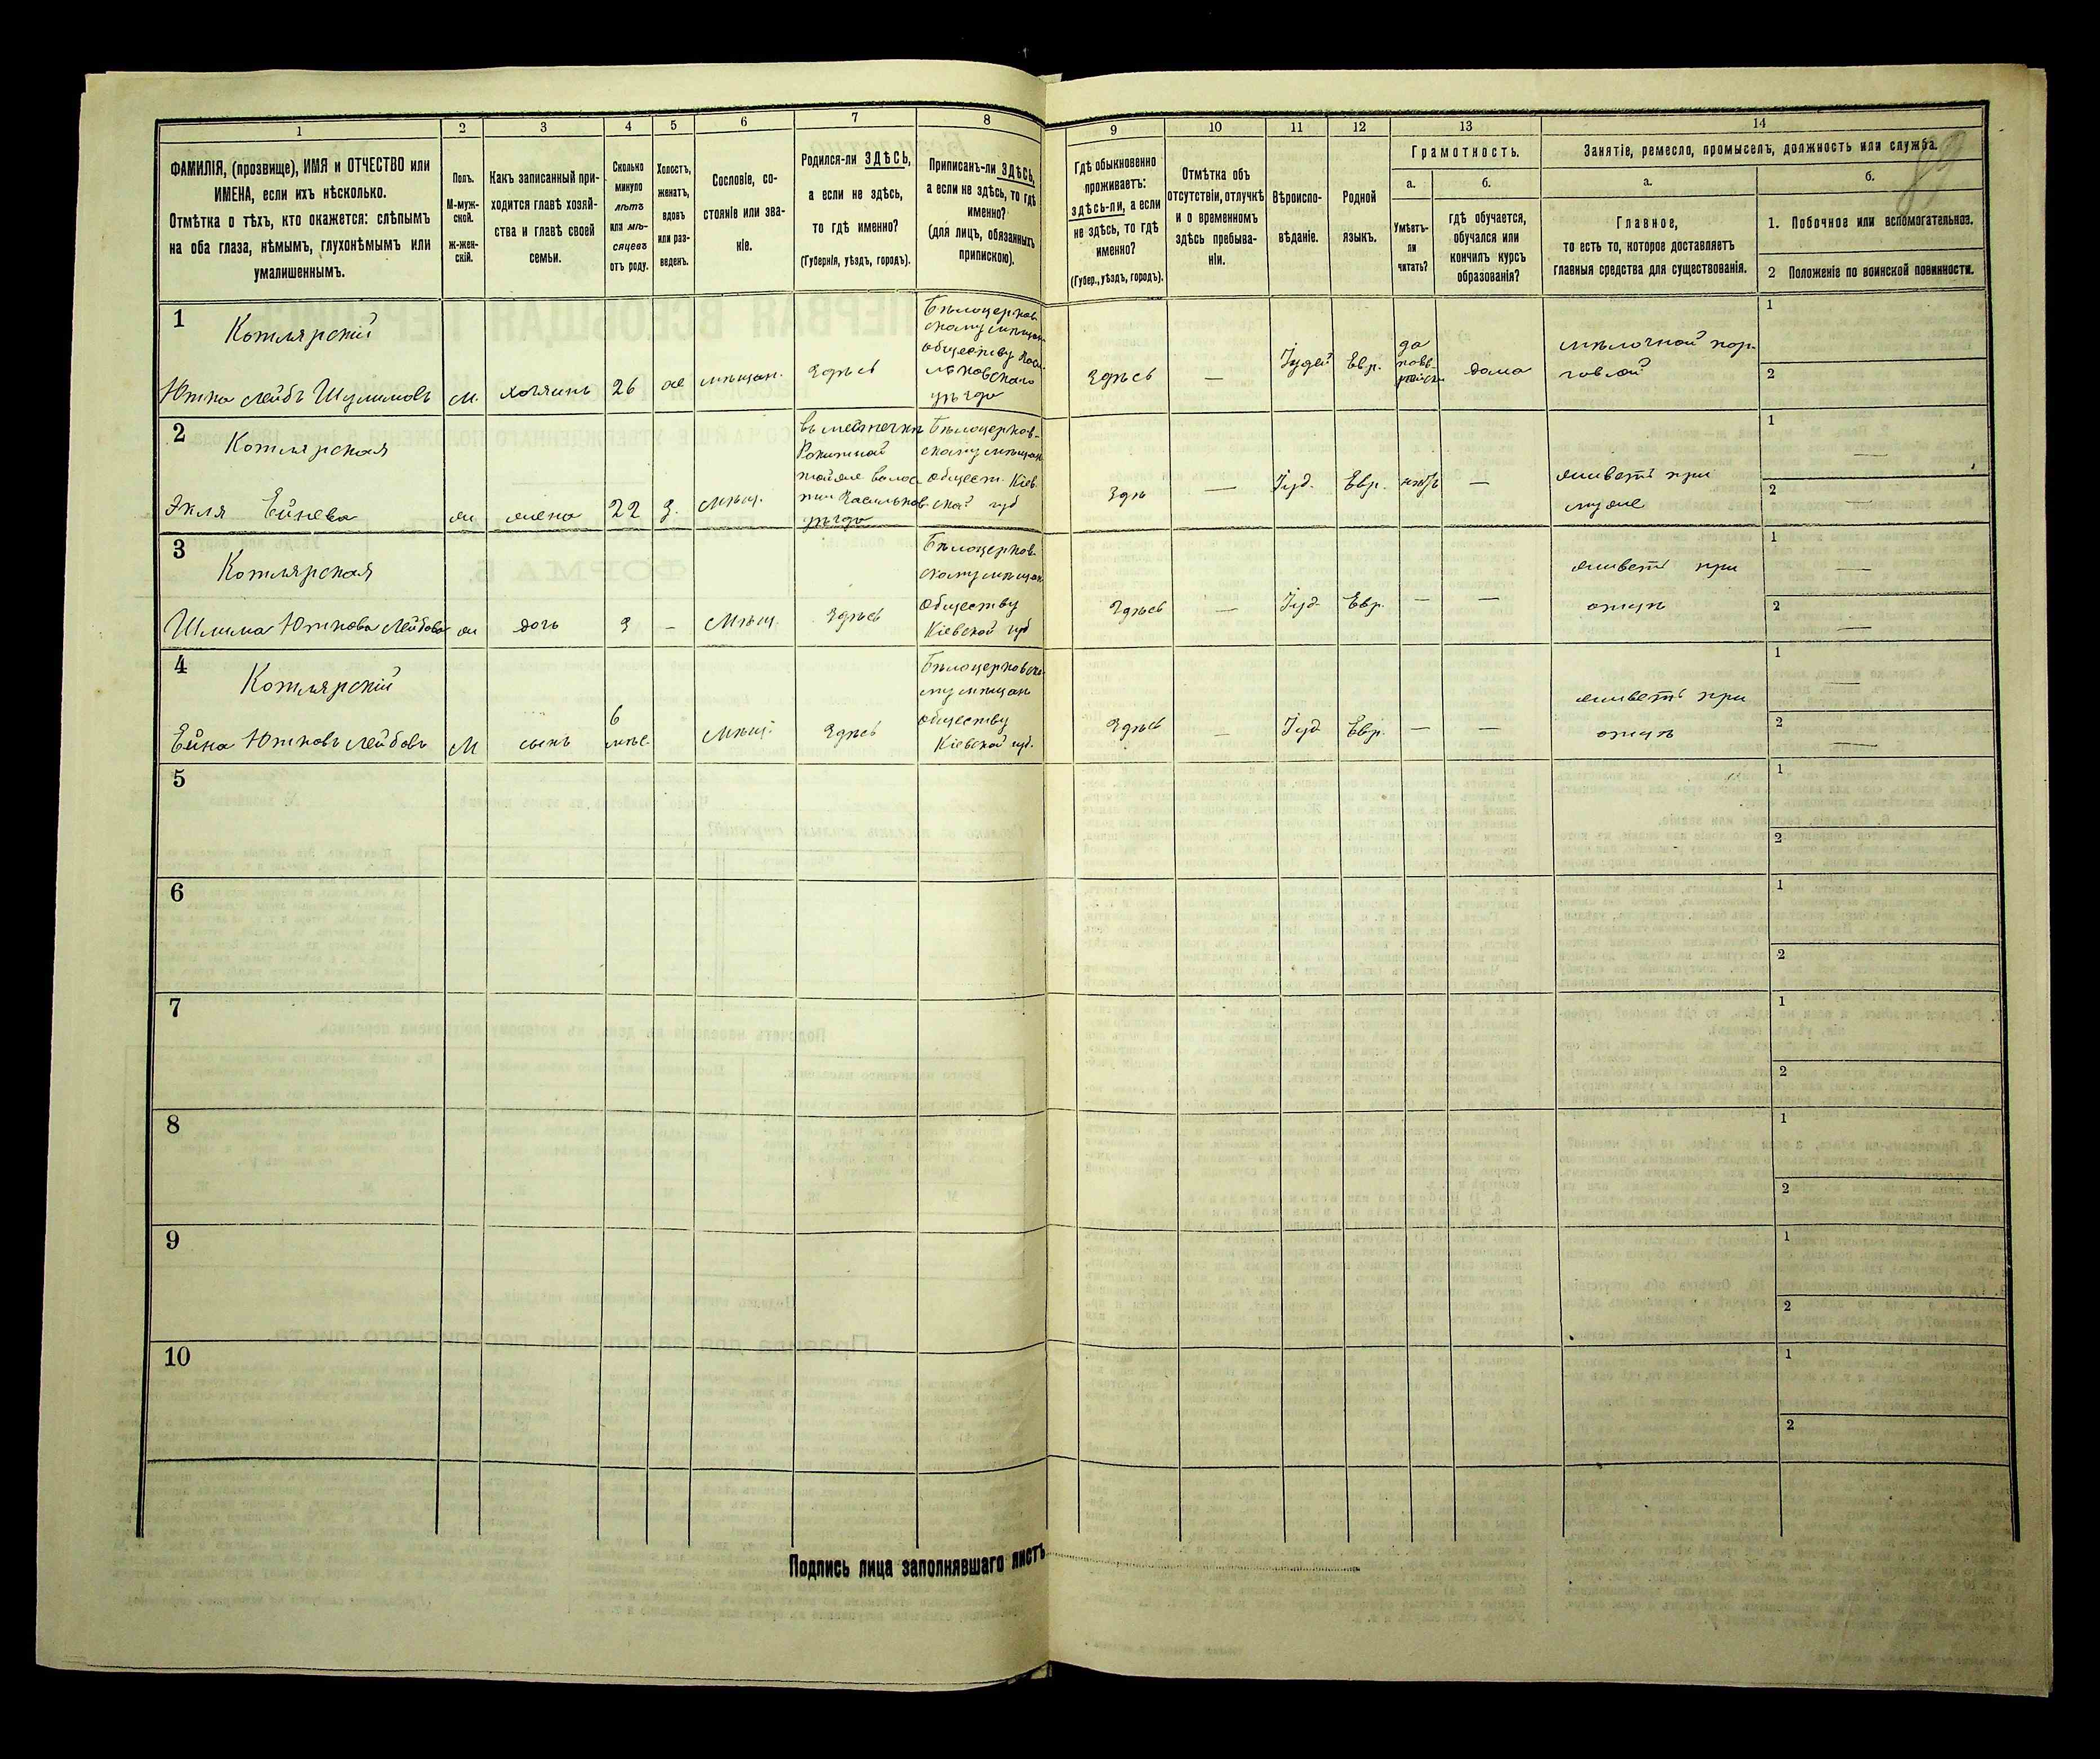 1 2 3 4 5 6 7 8 9 10 11 12 13 14
ФАМИЛІЯ, (прозвище), ИМЯ и ОТЧЕСТВО или
ИМЕНА, если ихъ нѣсколько.
Отмѣтка о тѣхъ, кто окажется: слѣпымъ
на оба глаза, нѣмымъ, глухонѣмымъ или
умалишеннымъ.
Полъ.
М-муж-
ской.
ж-жен-
скій.
Какъ записанный при-
ходится главѣ хозяй-
ства и главѣ своей
семьи.
Сколько
минуло
лѣтъ
или мѣ-
сяцевъ
отъ роду.
Холостъ,
женатъ,
вдовъ
или раз-
веденъ.
Сословіе, со-
стояніе или зва-
ніе.
Родился-ли ЗДѢСЬ,
а если не здѣсь,
то гдѣ именно?
(Губернія, уѣздъ, городъ).
Приписанъ-ли ЗДѢСЬ,
а если не здѣсь, то гдѣ
именно?
(для лицъ, обязанныхъ
припискою).
Гдѣ обыкновенно
проживаетъ:
здѣсь-ли, а если
не здѣсь, то гдѣ
именно?
(Губер., уѣздъ, городъ).
Отмѣтка объ
отсутствіи, отлучкѣ
и о временномъ
здѣсь пребыва-
ніи.
Вѣроиспо-
вѣданіе.
Родной
языкъ.
Грамотность.
а.
Умѣетъ-
ли
читать?
б.
гдѣ обучается,
обучался или
кончилъ курсъ
образованія?
Занятіе, ремесло, промыселъ, должность или служба.
89
а.
Главное,
то есть то, которое доставляетъ
главныя средства для существованія.
б.
1. Побочное или вспомогательное.
2 Положеніе по воинской повинности.
1
Котлярскій
Лейбъ Шулимовъ
м.
хозяинъ
26
ж
мѣщан.
Здѣсь
Бѣлоцерков-
скому мѣщан
обществу Вас
льковскаго
уѣзда
Здѣсь
—
Іудей
Евр.
да
дома
мѣлочной тор-
говлей
1
2
2
Котлярская
Экля Ейнева
ж
жена
22
з.
мѣщ.
въ местечкѣ
Рокитной
той же волос
ти Васильков
уѣзда
Бѣлоцерков-
скому мѣщан
общест. Кіев
ской губ
Здѣ
—
Іуд.
Евр.
нѣтъ
—
живетъ при
муже
1
—
2
—
3
Котлярская
Шлима Юткова Лейбова
ж
дочь
3
—
мѣщ.
Здѣсь
Бѣлоцерков-
скому мѣщан
обществу
Кіевской губ
Здѣсь
—
Іуд.
Евр.
—
—
живетъ при
отцѣ
1
—
2
—
4
Котлярскій
Ейна Ютковъ Лейбовъ
М
сынъ
6
мѣс.
мѣщ.
Здѣсь
Бѣлоцерковско
му мѣщан
обществу
Кіевской губ.
Здѣсь
—
Іуд
Евр.
—
—
живетъ при
отцѣ
1
—
2
—
5
1
2
6
1
2
7
1
2
8
1
2
9
1
2
10
1
2
Подпись лица заполнявшаго листъ